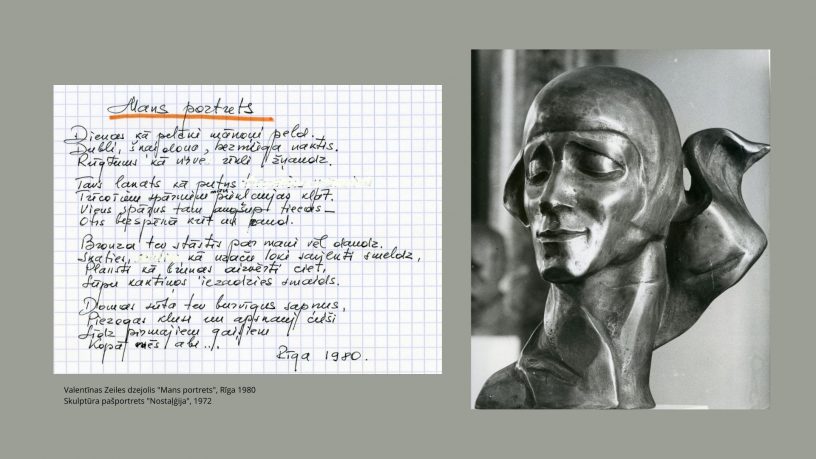 Mans portrets
Dienas kā pelēni mākoņi peld.
Dubļi, šķīdonis, bezmiega naktis.
Rūgtums kā virve rīkli žņaudz.
Tavs lakats kā putns
Trīcošiem spārniem pieklaujas klāt.
Viens spārns tam augšup tiecas –
Otrs bezspēkā krīt un raud.
Bronza tev stāstīs par mani vēl daudz.
Skaties, kā uzacu loki saspenti smeldz,
Plaksti kā bruņas aizvērti cieti,
Lūpu kaktiņos iezadzies smaids.
Domas sūta tev burvīgus sapņus,
Piezogas klusu un apskauj cieši
Līdz pirmajiem gaiļiem
Kopā mēs abi...
Rīga 1980.
Valentīnas Zeiles dzejolis "Mans portrets", Rīga 1980
Skulptūra pašportrets "Nostaļģija", 1972